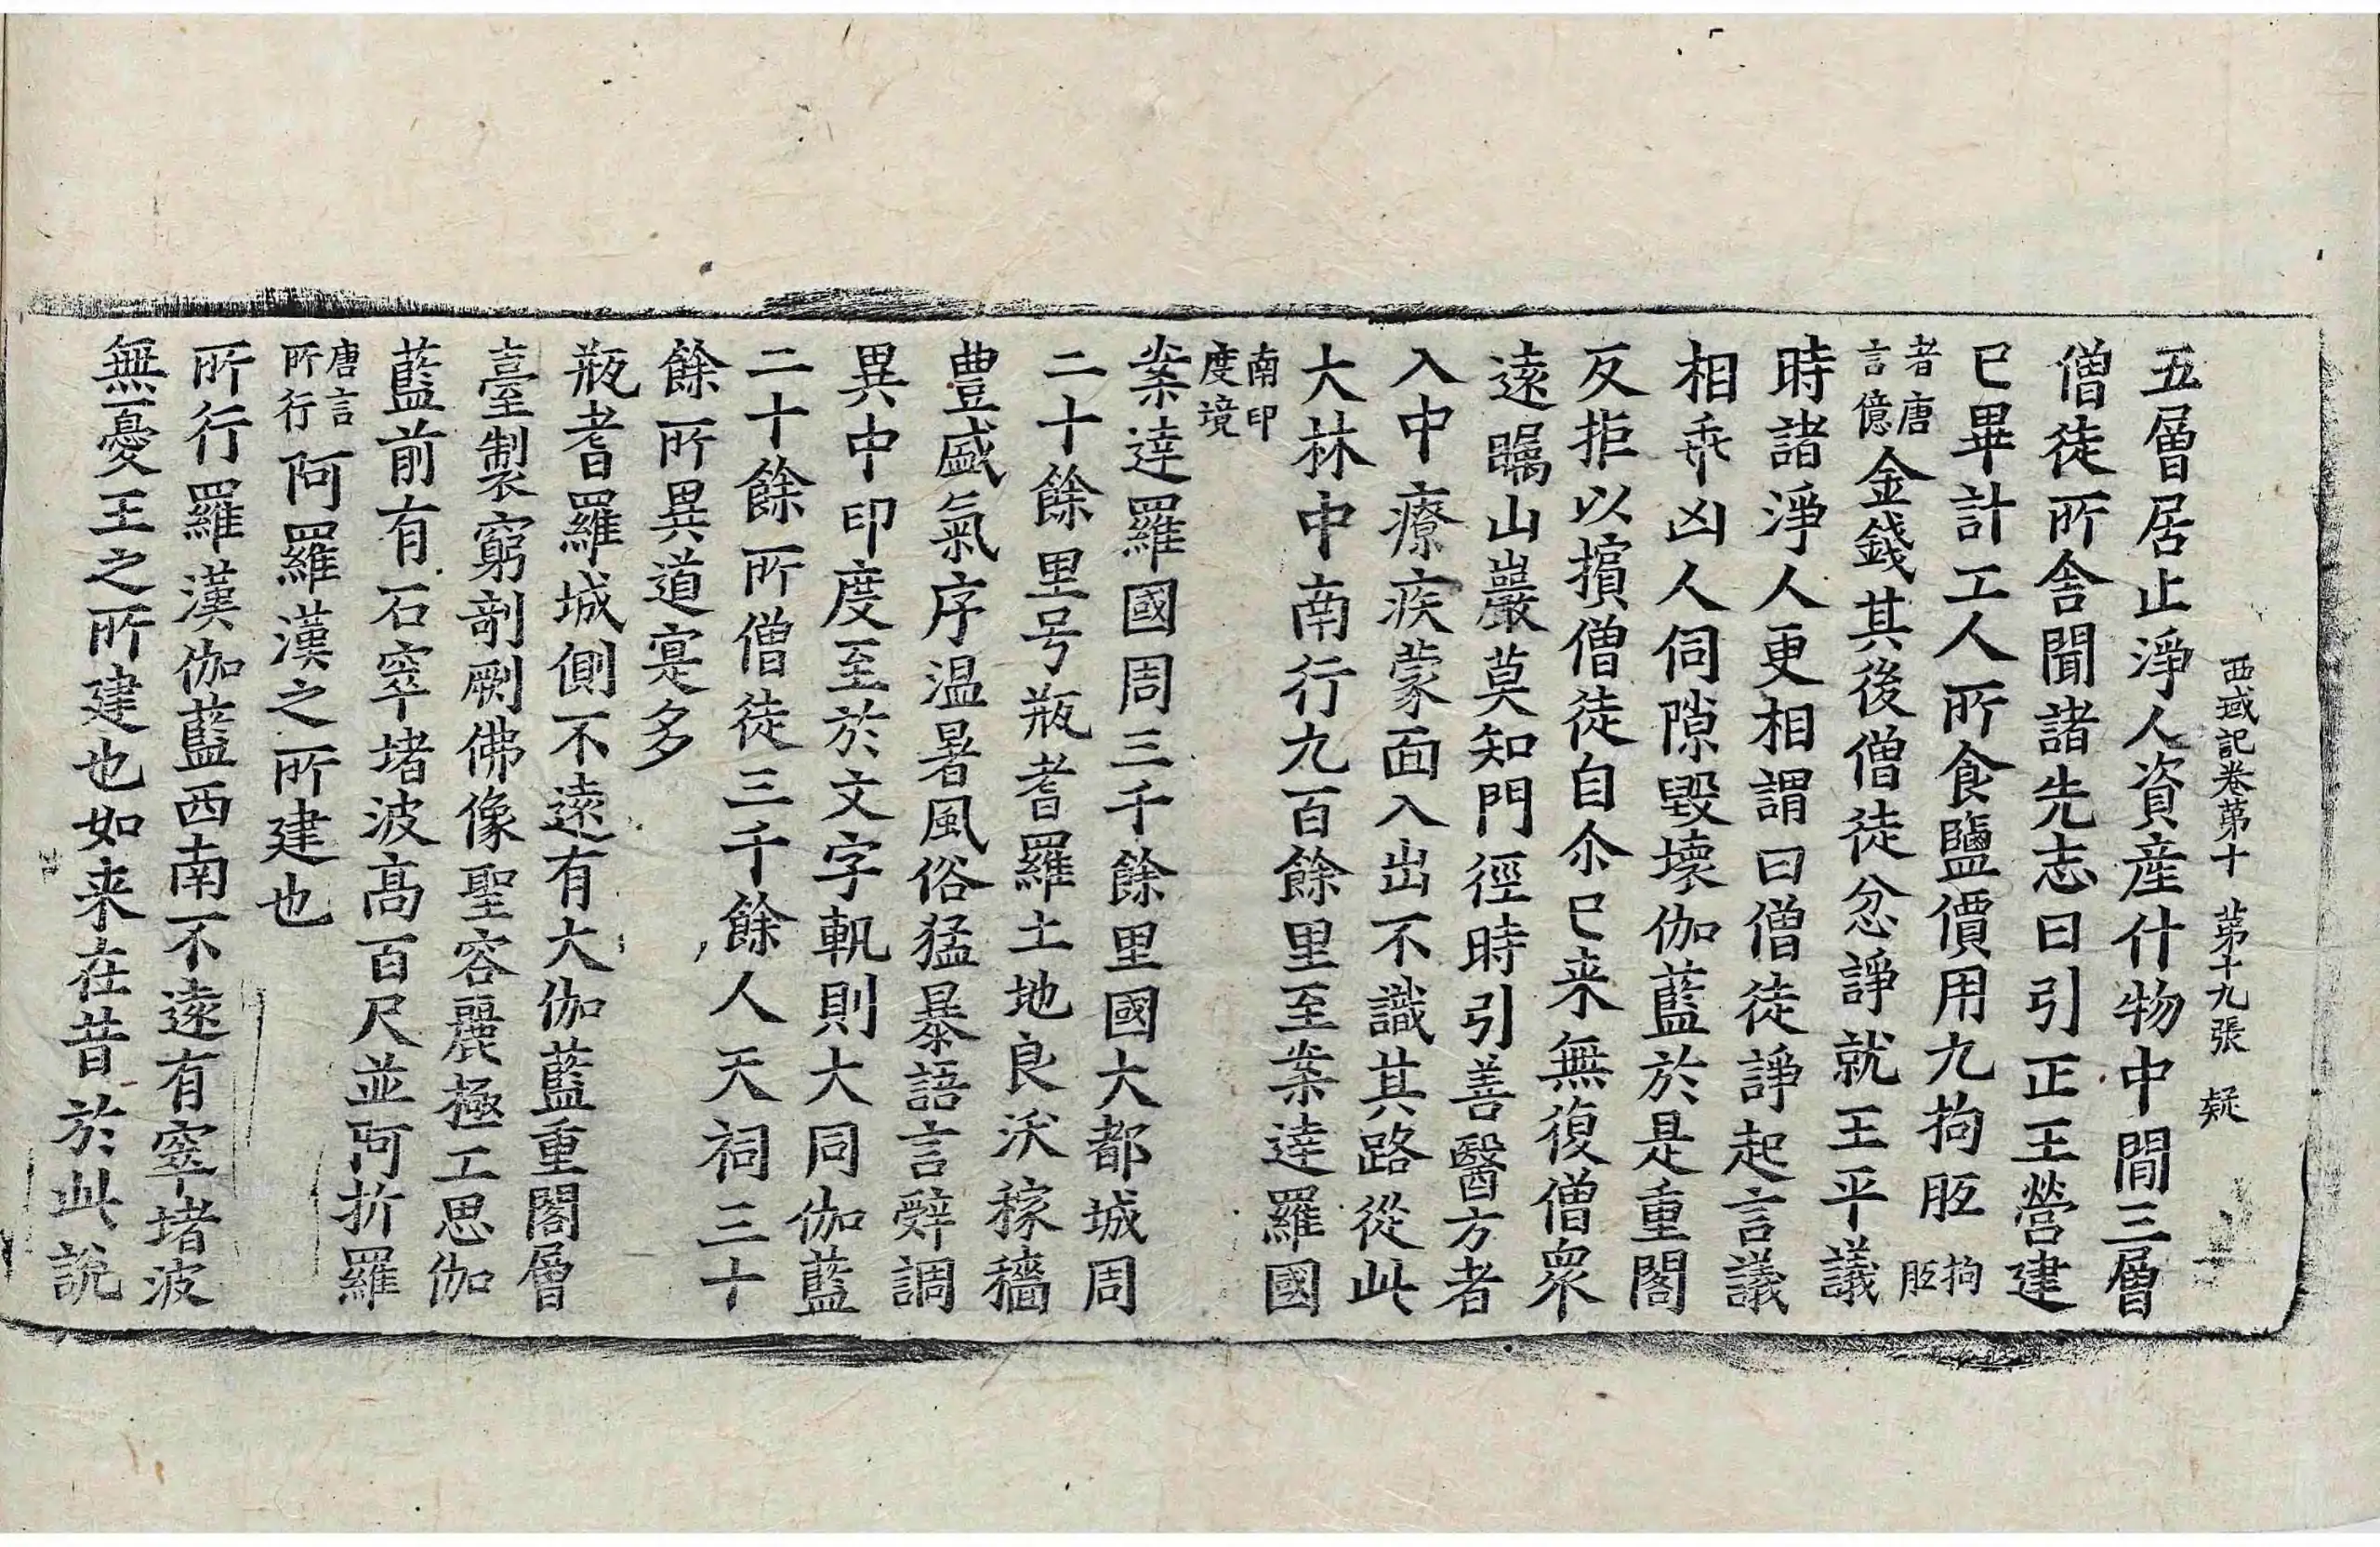 西域記卷第十 第十九張 疑
五層居止淨人資産什物中間三層
僧徒所舍聞諸先志曰引正王營建
已畢計工人所食鹽價用九拘胝拘胝
者唐言億金錢其後僧徒忿諍就王平議
時諸淨人更相謂曰僧徒諍起言議
相乖凶人伺隙毀壞伽藍於是重閣
反拒以擯僧徒自尒已来無復僧衆
遠矚山巖莫知門徑時引善醫方者
入中療疾蒙面入出不識其路從此
大林中南行九百餘里至案達羅國
南印度境
案達羅國周三千餘里國大都城周
二十餘里号瓶耆羅土地良沃稼穡
豊盛氣序温暑風俗猛暴語言辝調
異中印度至於文字軌則大同伽藍
二十餘所僧徒三千餘人天祠三十
餘所異道寔多
瓶耆羅城側不遠有大伽藍重閣層
臺製窮剞劂佛像聖容麗極工思伽
藍前有石窣堵波髙百尺並阿折羅
唐言所行阿羅漢之所建也
所行羅漢伽藍西南不遠有窣堵波
無憂王之所建也如来在昔於此說